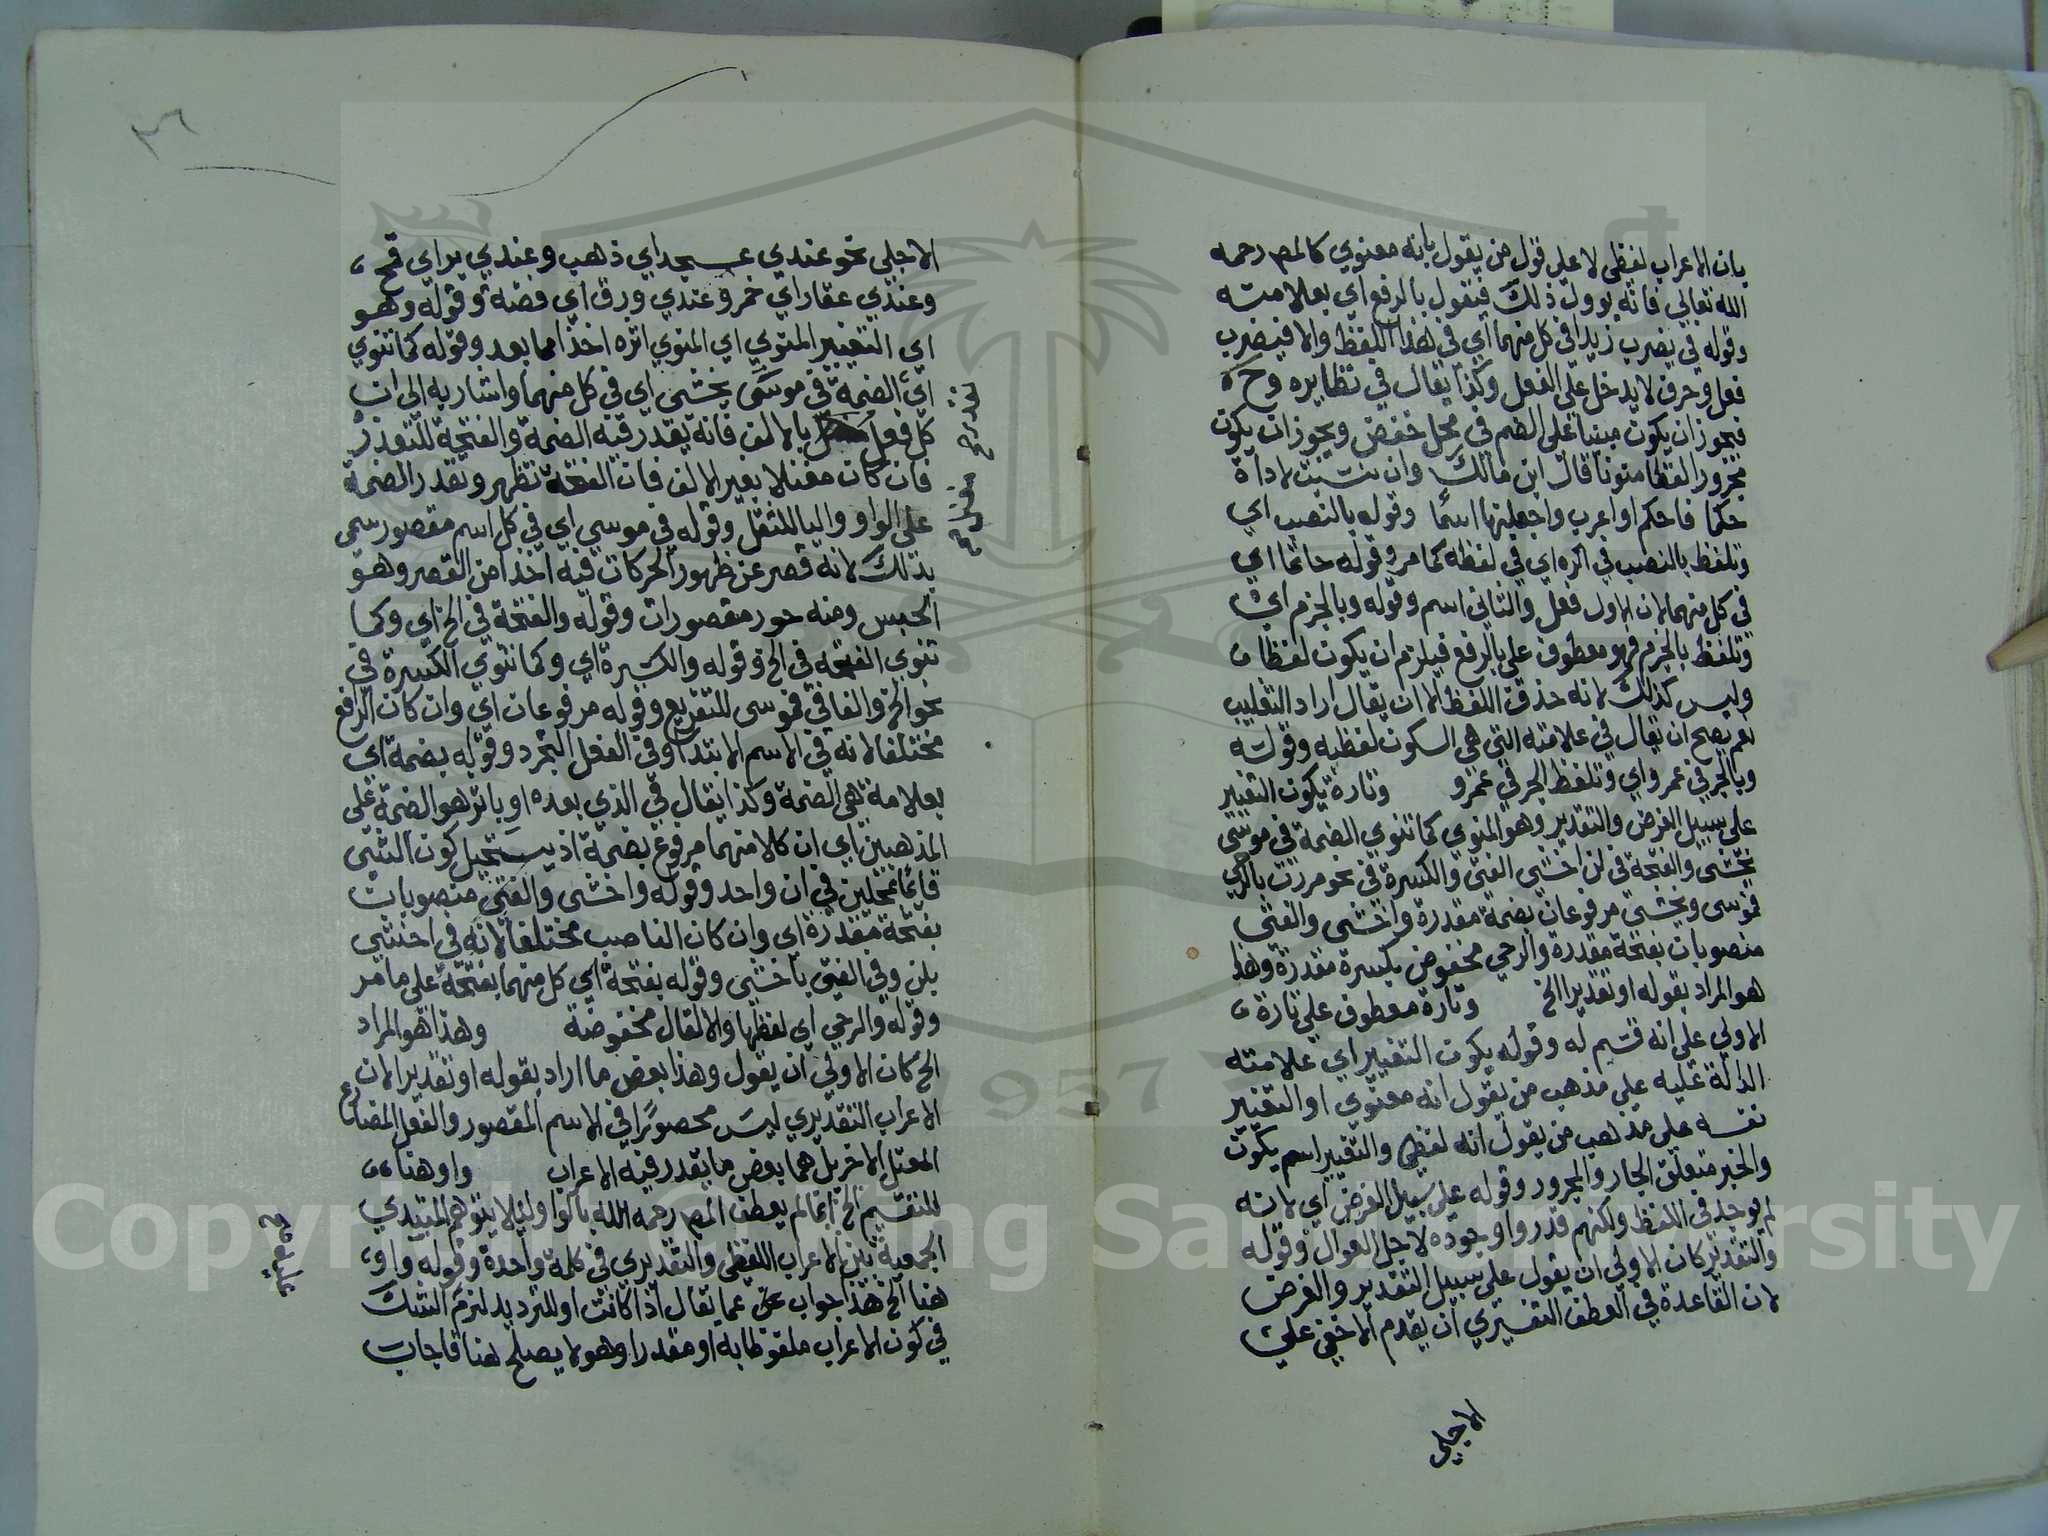 بان الاعراب لفظي لا على قول من يقول بانه معنوي كالمص رحمه
الله تعالى فانه يوول ذلك فيقول بالرفع اي بعلامته
وقوله في يضرب زيد اي في كل منهما اي في هذا اللفظ والا فيضرب
فعل وحرف لا يدخل على الفعل وكذا يقال في نظايره وح
فيجوز ان يكون مبنيا على الضم في محل خفض ويجوز ان يكون
مجرور لفظا منونا قال ابن مالك وان نسبت لاداة
حكما فاحكم او اعرب واجعلنها اسما وقوله بالنصب اي
وتلفظ بالنصب في اكره اي في لفظه كما مر وقوله حاتما اي
في كل منهما لان الاول فعل والثاني اسم وقوله وبالجزم اي
وتلفظ بالجزم فهو معطوف على بالرفع فيلزم ان يكون لفظا
وليس كذلك لانه حذف اللفظ الا ان يقال اراد التغليب
نعم يصح ان يقال في علامته التي هي السكون لفظيه وقوله
وبالجر في عمرو اي وتلفظ الجر في عمرو وتارة يكون التغيير
على سبيل الفرض والتقدير وهو المنوي كما تنوي الضمة في موسى
يخشى والفتحة في لن اخشى الفتى والكسرة في نحو مررت بالرحى
فموسى ويخشى مرفوعان بضمة مقدرة واخشى والفتى
منصوبان بفتحة مقدرة والرحى مخفوض بكسرة مقدرة وهذا
هو المراد بقوله او تقديرا الخ وتارة معطوف على تارة
الاولى على انه قسيم له وقوله يكون التغيير اي علامته
الدالة عليه على مذهب من يقول انه معنوي او التغيير
نفسه على مذهب من يقول انه لفظي والتغيير اسم يكون
والخبر متعلق الجار والمجرور وقوله على سبيل الفرض اي لانه
لم يوجد في اللفظ ولكنهم قدروا وجوده لاجل العوامل وقوله
والتقدير كان الاولى ان يقول على سبيل التقدير والفرض
لان القاعدة في العطف التفسيري ان يقدم الاخفى على
الاجلى
٣٦
الاجلى نحو عندي عسجد اي ذهب وعندي بر اي قمح
وعندي عقار اي خمر وعندي ورق اي فضة وقوله وهو
اي التغيير المنوي اي المنوي اثره اخذا مما بعد وقوله كما تنوي
اي الضمة في موسى يخشى اي في كل منهما واشار به الى ان
كل فعل بالالف فانه يقدر فيه الضمة والفتحة للتعذر
فان كان معتلا بغير الالف فان الفتحة تظهر وتقدر الضمة
على الواو واليا للثقل وقوله في موسى اي في كل اسم مقصور سمي
بذلك لانه قصر عن ظهور الحركات فيه اخذا من القصر وهو
الحبس ومنه حور مقصورات وقوله والفتحة في الخ اي وكما
تنوي الفتحة في الخ وقوله والكسرة اي وكما تنوي الكسرة في
نحو الخ والفا في فموسى للتفريع وقوله مرفوعان اي وان كان الرافع
مختلفا لانه في الاسم الابتدا وفي الفعل التجرد وقوله بضمة اي
بعلامة هي الضمة وكذا يقال في الذي بعده او باثر هو الضمة على
المذهبين اي ان كلا منهما مرفوع بضمة اذ يستحيل كون الشي
قايما بمحلين في ان واحد وقوله واخشى والفتى منصوبان
بفتحة مقدرة اي وان كان الناصب مختلفا لانه في اخشى
بلن وفي الفتى باخشى وقوله بفتحة اي كل منهما بفتحة على ما مر
وقوله والرحى اي لفظها والا لقال مخفوضة وهذا هو المراد
الخ كان الاولى ان يقول وهذا بعض ما اراد بقوله او تقديرا لان
الاعراب التقديري ليس محصورا في الاسم المقصور والفعل المضارع
المعتل الاخر بل هما بعض ما يقدر فيه الاعراب واو هنا
للتقسيم الخ انما لم يعطف المص رحمه الله بالواو ليلا يتوهم المبتدي
الجمعية بين الاعراب اللفظي والتقديري في كلمة واحدة وقوله واو
هنا الخ هذا جواب عن عما يقال اذا كانت او للترديد لزم الشك
في كون الاعراب ملفوظا به او مقدرا وهو لا يصلح هنا فاجاب